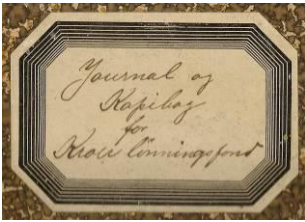 Journal og
Kopibog
for
Kroer lønningsfond